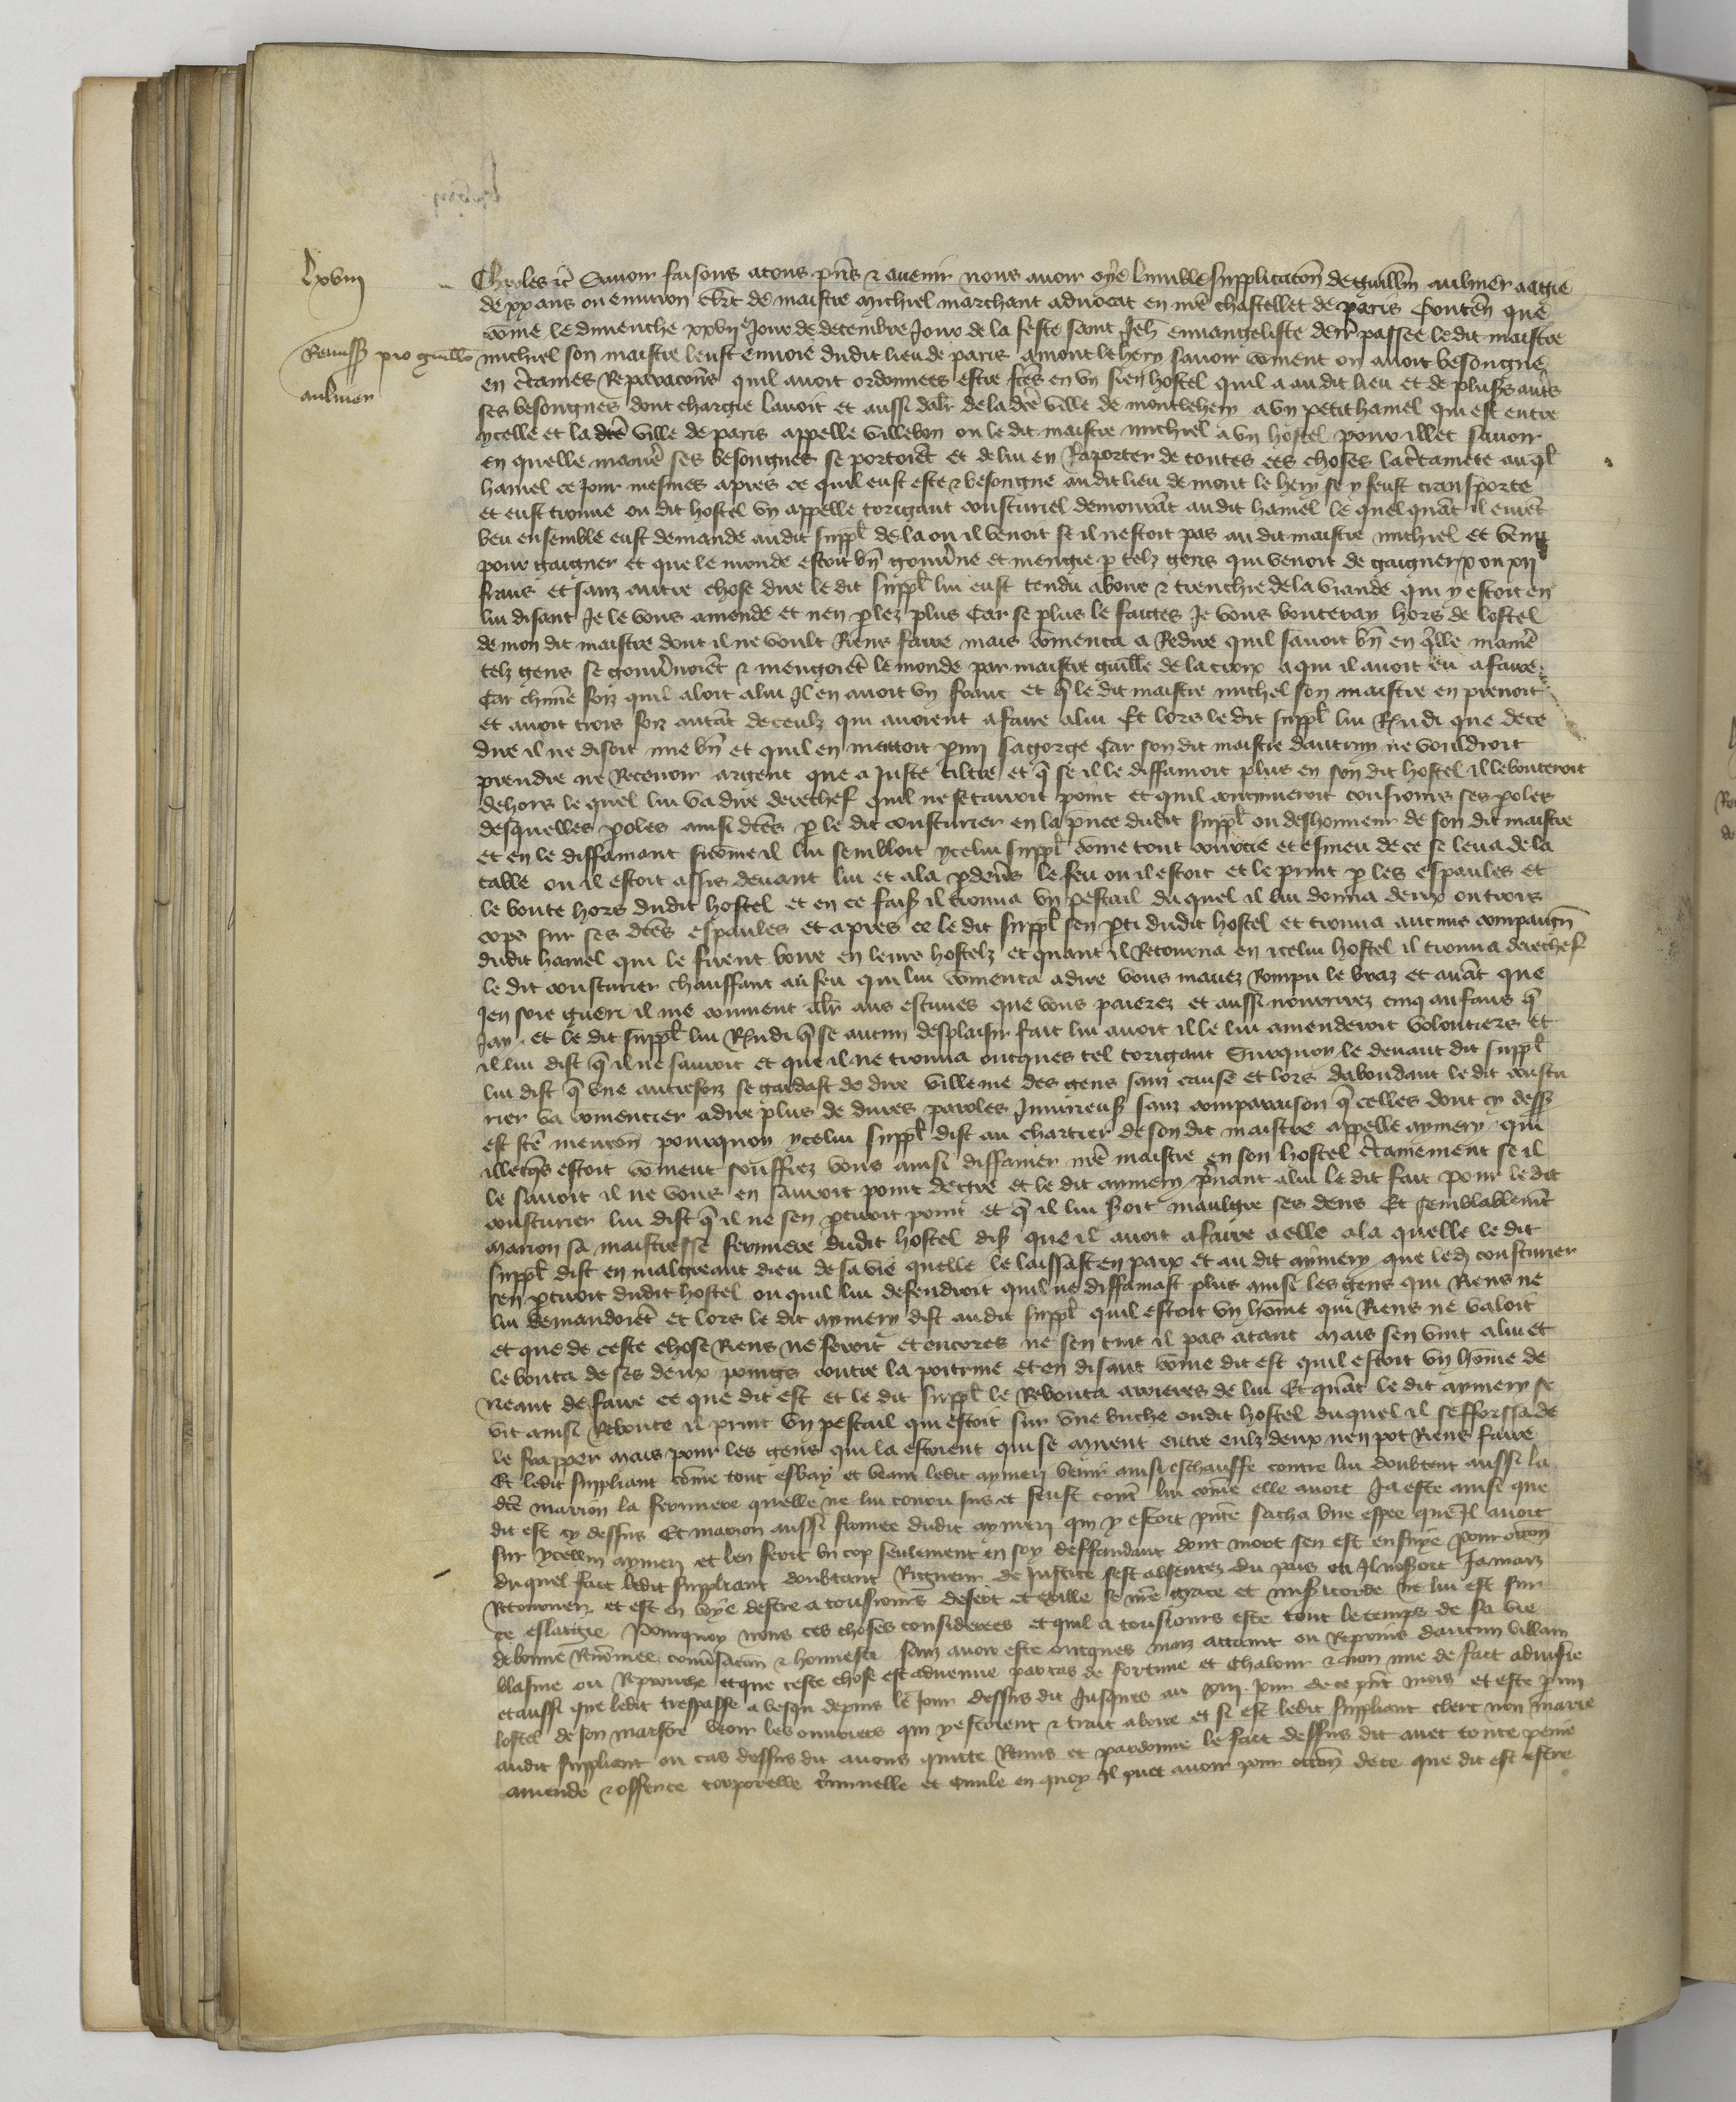 lxviii
Remiss pro guillo
aulmer
Charles etc Savoir faisons a tous pñs & avenir nous avoir oye lumble supplicacon de guillm aulmer aagie
de xx ans ou environ clerc de maistre michiel marchant advocat en nre chastellet de paris Conten que
come le dimenche xxvije Jour de decembre Jour de la feste saint Jeh euvangeliste derr passee le dit maistre
michiel son maistre leust envoie dudit lieu de paris a mont le hery savoir coment on avoit besongne
en ctaines Reparacons quil avoit ordonnees estre fctes en un sien hostel quil a au dit lieu et de plus autres
ses besongnes dont chargie lavoit et aussi daler de la dce ville de mont le hery a un petit hamel qui est entre
ycelle et la dce ville de paris appelle villebon ou le dit maistre michiel a un hostel pour illec savoir
en quelle maniere ses besongnes se portoient et de lui en Raporter de toutes ces choses la ctainete au ql
hamel ce Jour mesmes apres ce quil eust este & besongne au dit lieu de mont le hery se y feust transporte
et eust trouve ou dit hostel un appelle torigaut cousturiel demourant audit hamel le quel quant il eurent
beu ensemble eust demande au dit suppl de la ou il venoit se il nestoit pas au dit maistre michiel et venu
pour gaigner et que le monde estoit bn gouvne et mengie p telz gens qui venoit de gaigner x ou xij
frans et sanz autre chose dire le dit suppl lui eust tendu a boire & trenchie de la viande qui y estoit en
lui disant Je le vous amende et nen plez plus Car se plus le faictes Je vous bouteray hors de lostel
de mon dit maistre dont il ne voult Riens faire mais comenca a Redire quil savoit bn en qlle maniere
telz gens se gouvnoient & mengoient le monde par maistre guille de la croix a qui il avoit eu a faire
Car chune foiz quil aloit a lui Il en avoit un franc et q le dit maistre michel son maistre en prenoit
et avoit trois foiz autant de ceulz qui avoient a faire a lui Et lors le dit suppl lui Rndi que de ce
dire il ne disoit mie bn et quil en mentoit pmi sa gorge Car son dit maistre dautrui ne vouldroit
prendre ne Recevoir argent que a Juste tiltre et q se il le diffamoit plus en son dit hostel il le bouteroit
dehors le quel lui va dire derechef quil ne se tairoit point et quil continueroit tousiours ses poles
desquelles poles ainsi dctes p le dit cousturier en la pnce dudit suppl ou deshonneur de son dit maistre
et en le diffamant si come il lui sembloit ycelui suppl come tout courcie et esmeu de ce se leva de la
table ou il estoit assis devant lui et ala p devs le feu ou il estoit et le print p les espaules et
le boute hors dudit hostel et en ce fais il trouva un pestail du quel il lui donna deux ou trois
cops sur ses dctes espaules et apres ce le dit suppl sen pti dudit hostel et trouva aucuns compaign
dudit hamel qui le firent boire en leurs hostelz et quant il Retourna en icelui hostel il trouva derechef
le dit cousturier chauffant au feu qui lui comenca a dire vous mavez Rompu le braz et avant que
Jen soie gueri il me convient aler aus estuves que vous paierez et aussi nourrirez cinq anfans q
Jay. et le dit suppl lui Rndi q se aucun desplaisir fait lui avoit il le lui amenderoit volontiers et
il lui dist q il ne sauroit et que il ne trouva oncques tel torigaut Surquoy le devant dit suppl
lui dist q une autre foiz se gardast de dire villenie des gens sanz cause et lors dabondant le dit coustu
rier va comencier a dire plus de dures paroles Iniurieuses sanz comparaison q celles dont cy dess
est fcte mencon pourquoy ycelui suppl dist au chartier de son dit maistre appelle aymery qui
illecqs estoit coment souffrez vous ainsi diffamer nre maistre en son hostel ctainement se il
le savoit il ne vous en sauroit point de gre et le dit aymery pnant a lui le dit fait pour le dit
cousturier lui dist q il ne sen ptiroit point et q il lui seroit maulgre ses dens Et semblablement
marion sa maistresse fermiere dudit hostel dist que il avoit a faire a elle a la quelle le dit
suppl dist en malgreant dieu de sa vie quelle le laissast en paix et au dit aymery que led cousturier
sen ptiroit dudit hostel ou quil lui defendroit quil ne diffamast plus ainsi les gens qui Riens ne
lui demandoient et lors le dit aymery dist au dit suppl quil estoit un home qui Riens ne valoit
et que de ceste chose Riens ne feroit et encores ne sen tint il pas atant mais sen vint a lui et
le bouta de ses deux poings contre la poitrine et en disant come dit est quil estoit un home de
neant de faire ce que dit est et le dit suppl le Rebouta arrieres de lui Et quant le dit aymery se
vit ainsi Reboute il print un pestail qui estoit sur une huche ou dit hostel duquel il sefforssa de
le frapper mais pour les gens qui la estoient qui se mirent entre eulz deux nen pot Riens faire
Et ledit suppliant come tout esbay et veant ledit aymeri venir ainsi eschauffe contre lui doubtant aussi la
dcte marion la fermiere quelle ne lui couru sus et feust cont lui come elle avoit Ja este ainsi que
dit est cy dessus Et marion aussi fiancee dudit aymeri qui y estoit pnte sacha une espee que Il avoit
sur ycellui aymeri et len feri un cop seulement en soy deffendant dont mort sen est ensuye Pour occon
duquel fait ledit suppliant doubtant Rigueur de Justice sest absentez du pais ou Il noseroit Jamaiz
Retourner et est en voye destre a tousiours desert et exille se nre grace et misericorde ne lui est sur
ce eslargie Pourquoy nous ces choses considerees et quil a tousiours este tout le temps de sa vie
de bonne Renomee convsacon & honneste sanz avoir este oncques maiz attaint ou Repris daucun villain
blasme ou Reprouche et que ceste chose est advenue par cas de fortune et chaleur & non mie de fait advisie
et aussi que ledit trespasse a vesqu depuis le Jour dessus dit Jusques au viij Jour de ce pnt mois et este pmi
lostel de son maistre veoir les ouvriers qui y estoient & trait a boire et si est ledit suppliant clerc non marie
audit suppliant ou cas dessus dit avons quitte Remis et pardonne le fait dessus dit avec toute peine
amende & offense corporelle criminelle et civile en quoy Il puet avoir pour occon de ce que dit est estre